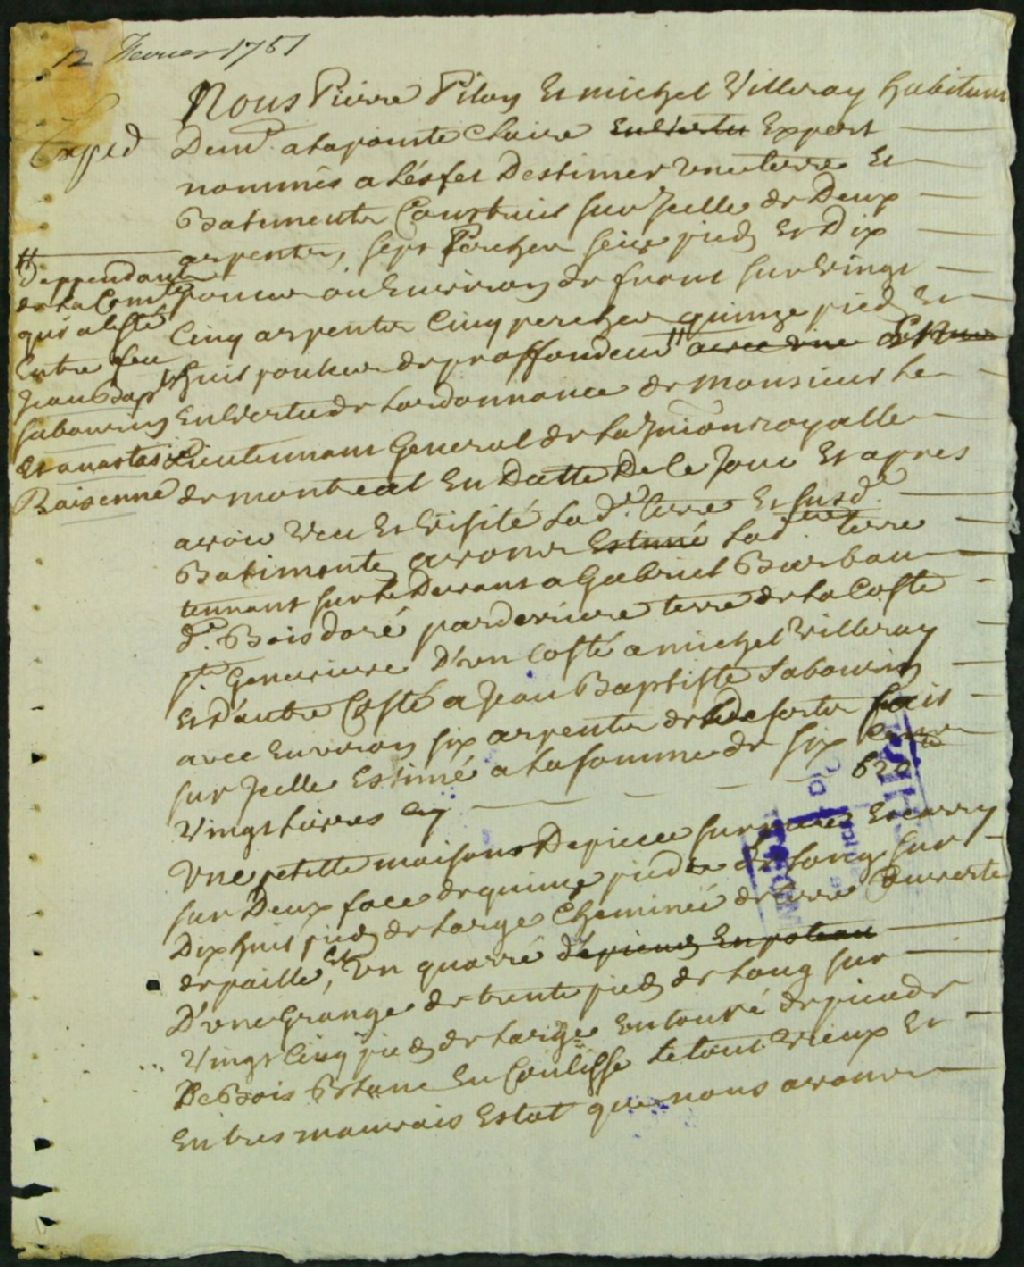 12 fevrier 1751
Exped
Nous Pierre Pilon Et michel Villeray habitans
Demt. a la pointe Claire En Vertu Expert
nommés a L'esfet Destimer une terre Et
Batiments Construit sur Jcelle de Deux
arpents, sept Perches seize pieds Et Dix
pouces ou Environ de front sur Vingt
Cinq arpents Cinq perches quinze pieds Et
huit pouces de proffondeur # avec une
En Vertu de Lordonnance de Monsieur Le
Lieutennant General de La Jurion royalle
de montreal En Datte De Ce Jour Et apres
avoir Veu Et Visité La de. terre Et susd.
Batiments avons Estimé Lad. terre
tennant sur Le Devant a Gabriel Barbau
de. Boisdoré par derriere terre de La Coste
ste. Genevieve D'un Costé a michel Villeray
Et D'autre Costé a Jean Baptiste Sabourin
avec Environ six arpents de deserter fait
sur Jcelle Estimé a La somme de six Cents
Vingt Livres Cy 620
Une petitte maison De piece sur pieces Ecarry
sur Deux face de quinze pieds de Long sur
Dix huit pieds de Large Cheminée de terre Couverte
de paille, Et Un quarré de pieux En poteau
D'une Grange de trente pieds de Long sur
Vingt Cinq pieds de Large Entouré de pieux de
De Bois Blanc En Coulisse Le tout Vieux Et
En tres mauvais Estat que nous avons
#
Deppendant
de La Comté
qui a Esté
Entre feu
Jean Bapt
Sabourin
Et anastasie
Raizenne